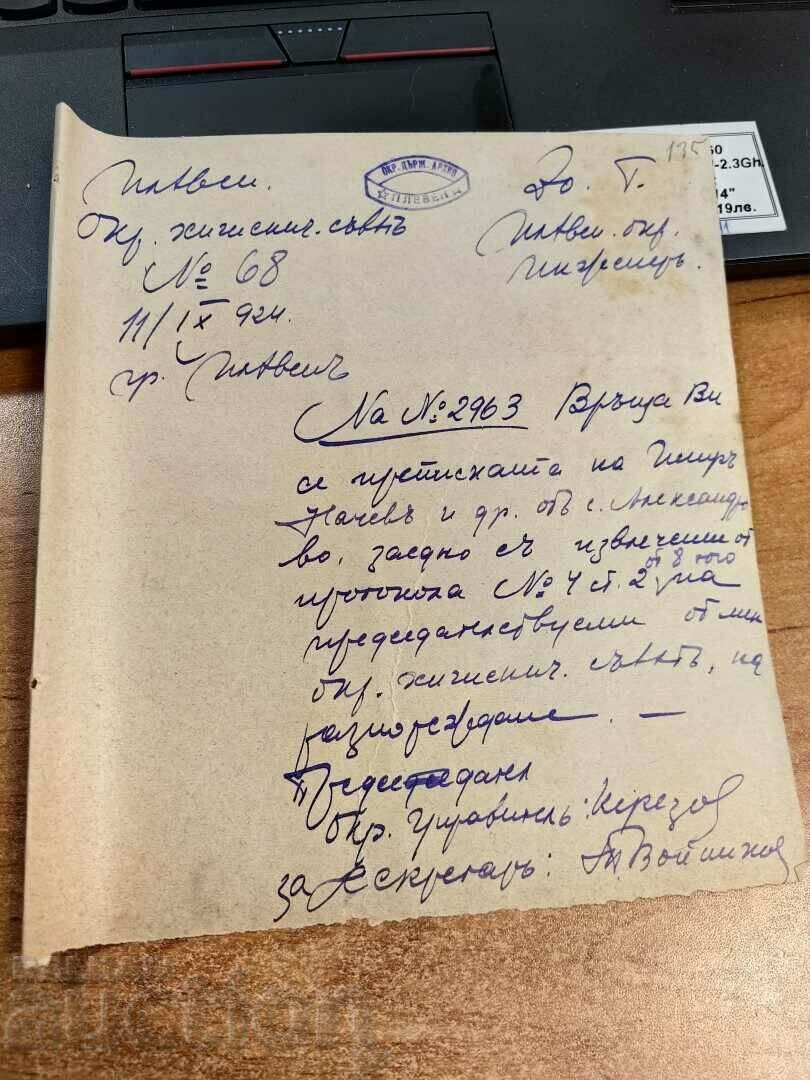 135
ОКР. ДЪРЖ. АРХИВ
ПЛЕВЕН
Плевен.
Окр. хигиенич. съветъ
№ 68
11/IX 924.
гр. Плевенъ
До. Г.
Плевен. окр.
Инженеръ.
На № 2963 Връща Ви
се преписката на
Начевъ и др. отъ с. Александро
во, заедно съ извлечение от
от 8 того
протокола № 4 ст. 2 на
председателствуемия от мен
окр. хигиенич. съветъ, на
разпореждане. —
Председател
Окр. Управитель:
за Секретарь:
60
-2.3Gh
14"
19лв.
auction